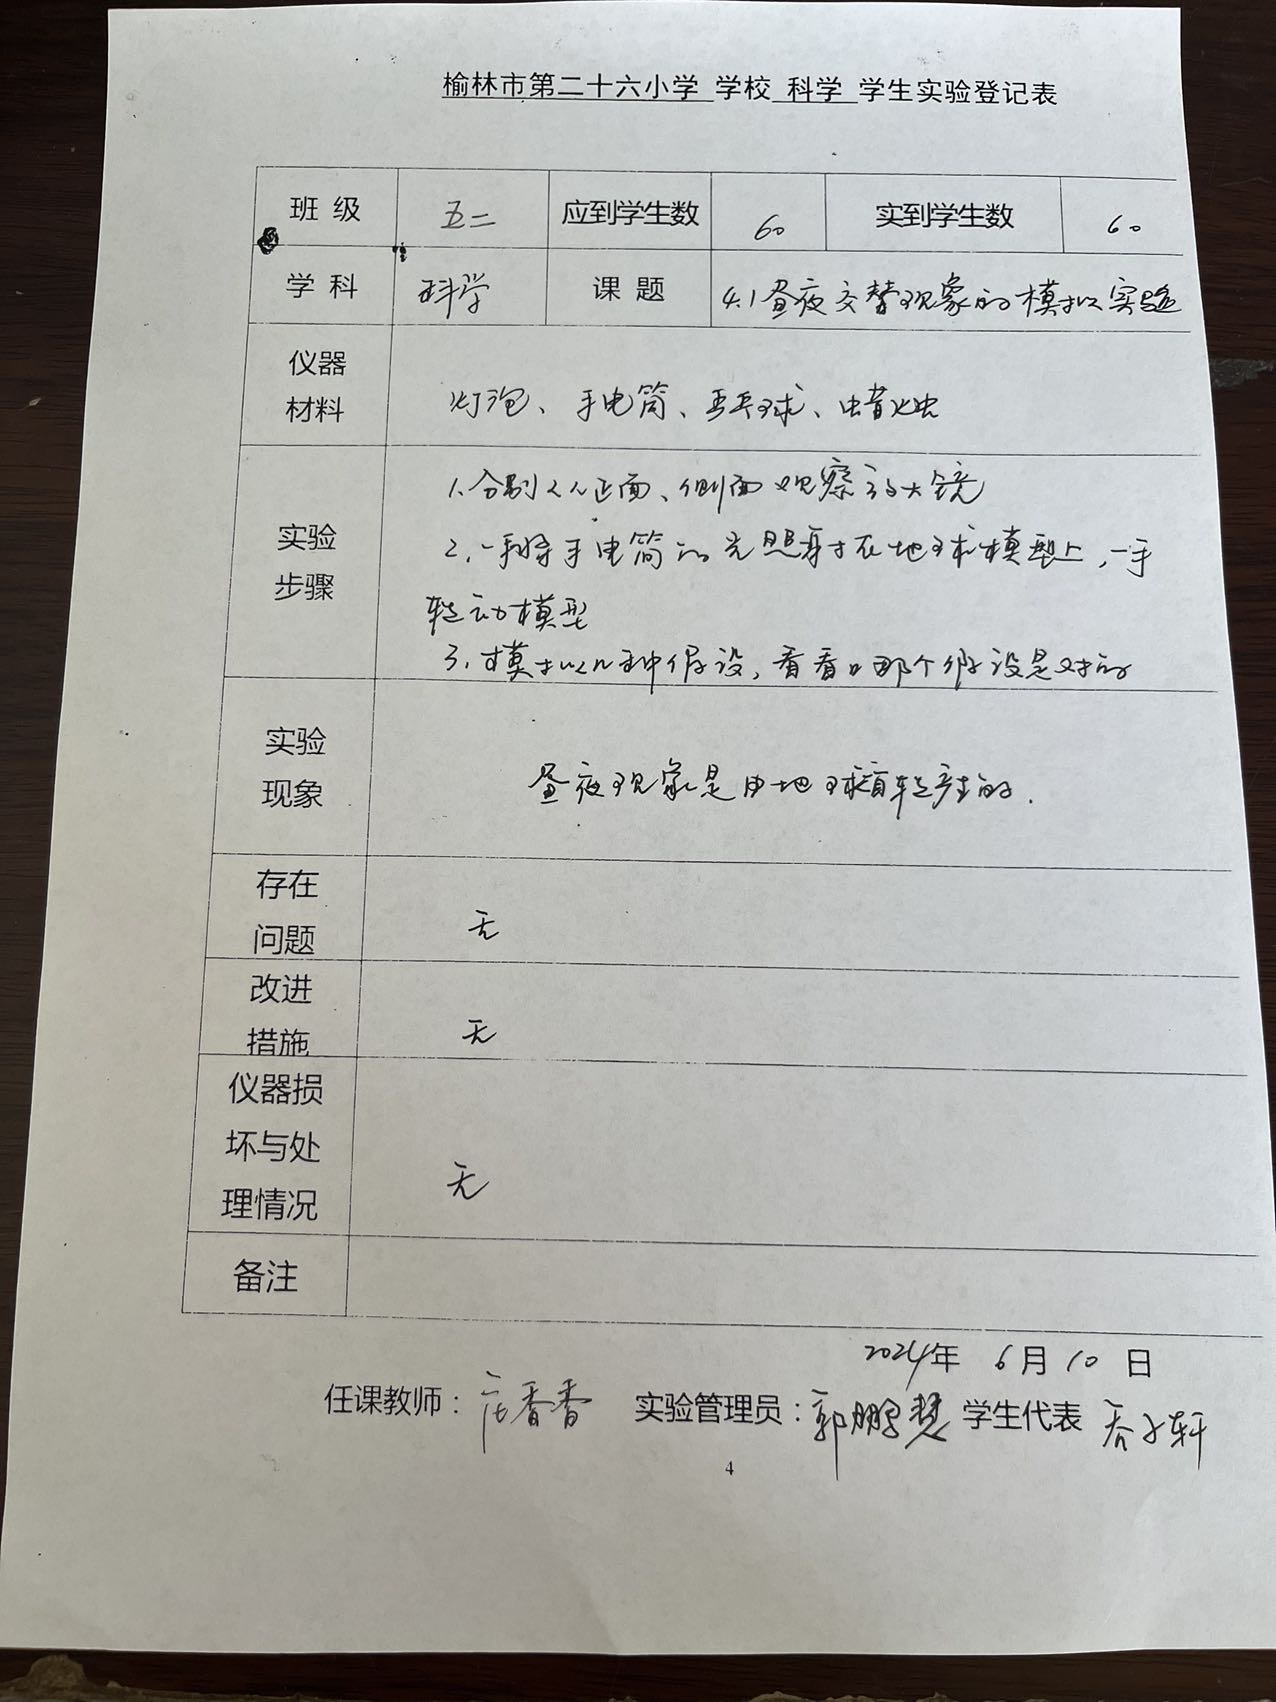 榆林市第二十六小学 学校 科学 学生实验登记表
班 级 五二 应到学生数 60 实到学生数 60
学 科 科学 课 题 4.1昼夜交替现象的模拟实验
仪器
材料
灯泡、手电筒、乒乓球、蜡烛
实验
步骤
1.分别从正面、侧面观察放大镜
2.一手将手电筒的光照射在地球模型上,一手
转动模型
3.模拟几种假设,看看哪个假设是对的
实验
现象
昼夜现象是由地球自转产生的.
存在
问题
无
改进
措施
无
仪器损
坏与处
理情况
无
备注
2024年 6月 10 日
任课教师: 香香 实验管理员:郭鹏慧 学生代表 子轩
4